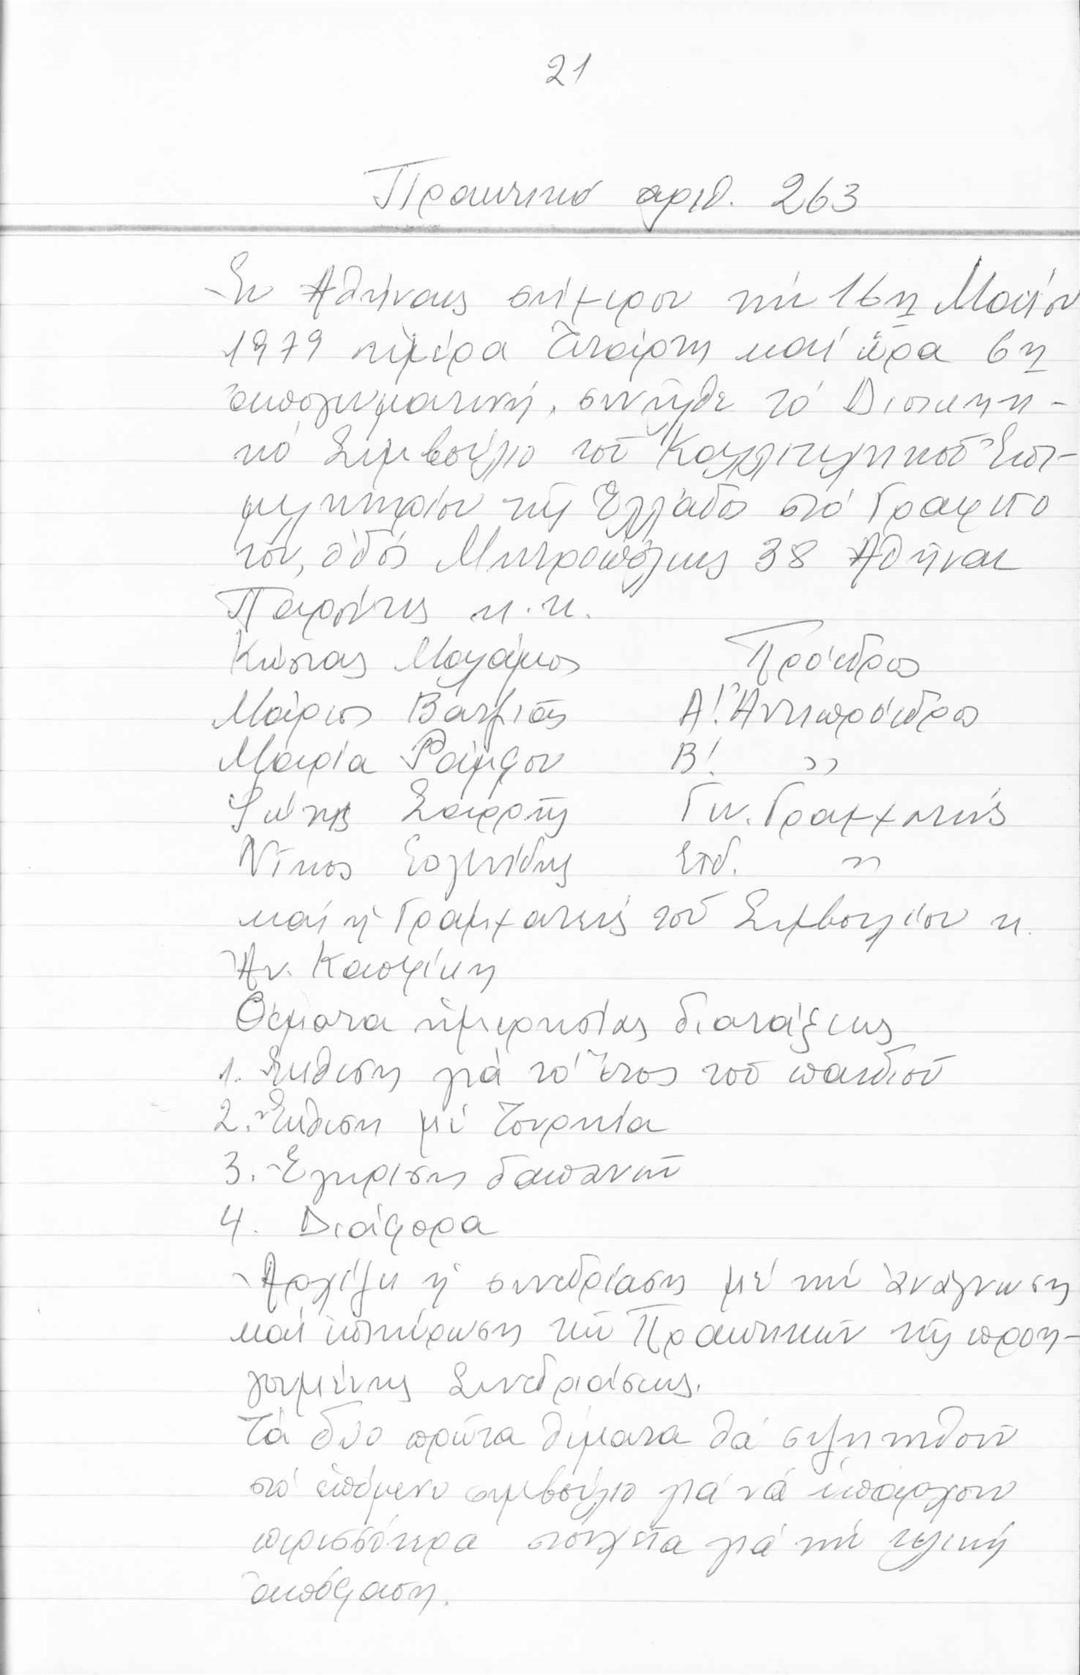 21
Πρακτικό αριθ. 263
Στην Ἀθήνα σήμερον τήν 16η Μαΐου
1979 ἡμέρα Τετάρτη καί ὥρα 6η
ἀπογευματινή, συνῆλθε τό Διοικητι-
κό Συμβούλιο τοῦ Καλλιτεχνικοῦ Ἐπι-
μελητηρίου τῆς Ἑλλάδος στό Γραφεῖο
του, ὁδός Μητροπόλεως 38 Ἀθῆναι
Παρόντες κ.κ.
Κώστας Μαλάμος Πρόεδρος
Μάριος Βατζιᾶς Α! Ἀντιπρόεδρος
Μαρία Ράμφου Β! ״
Φώτης Σαρρῆς Γεν. Γραμματεύς
Νῖκος Εὐγενίδης Εἰδ. ״
καί ἡ Γραμματεύς τοῦ Συμβουλίου κ.
Ἀν.
Θέματα ἡμερησίας διατάξεως
1. Ἔκθεση γιά τό Ἔτος τοῦ παιδιοῦ
2. Ἔκθεση μέ Τουρκία
3. Ἔγκρισης δαπανῶν
4. Διάφορα
Ἀρχίζει ἡ συνεδρίαση μέ τήν ἀνάγνωση
καί ἐπικύρωση τῶν Πρακτικῶν τῆς προη-
γουμένης Συνεδριάσεως.
Τά δύο πρῶτα θέματα θά συζητηθοῦν
στό ἑπόμενο συμβούλιο γιά νά ὑπάρχουν
περισσότερα στοιχεῖα γιά τήν τελική
ἀπόφαση.